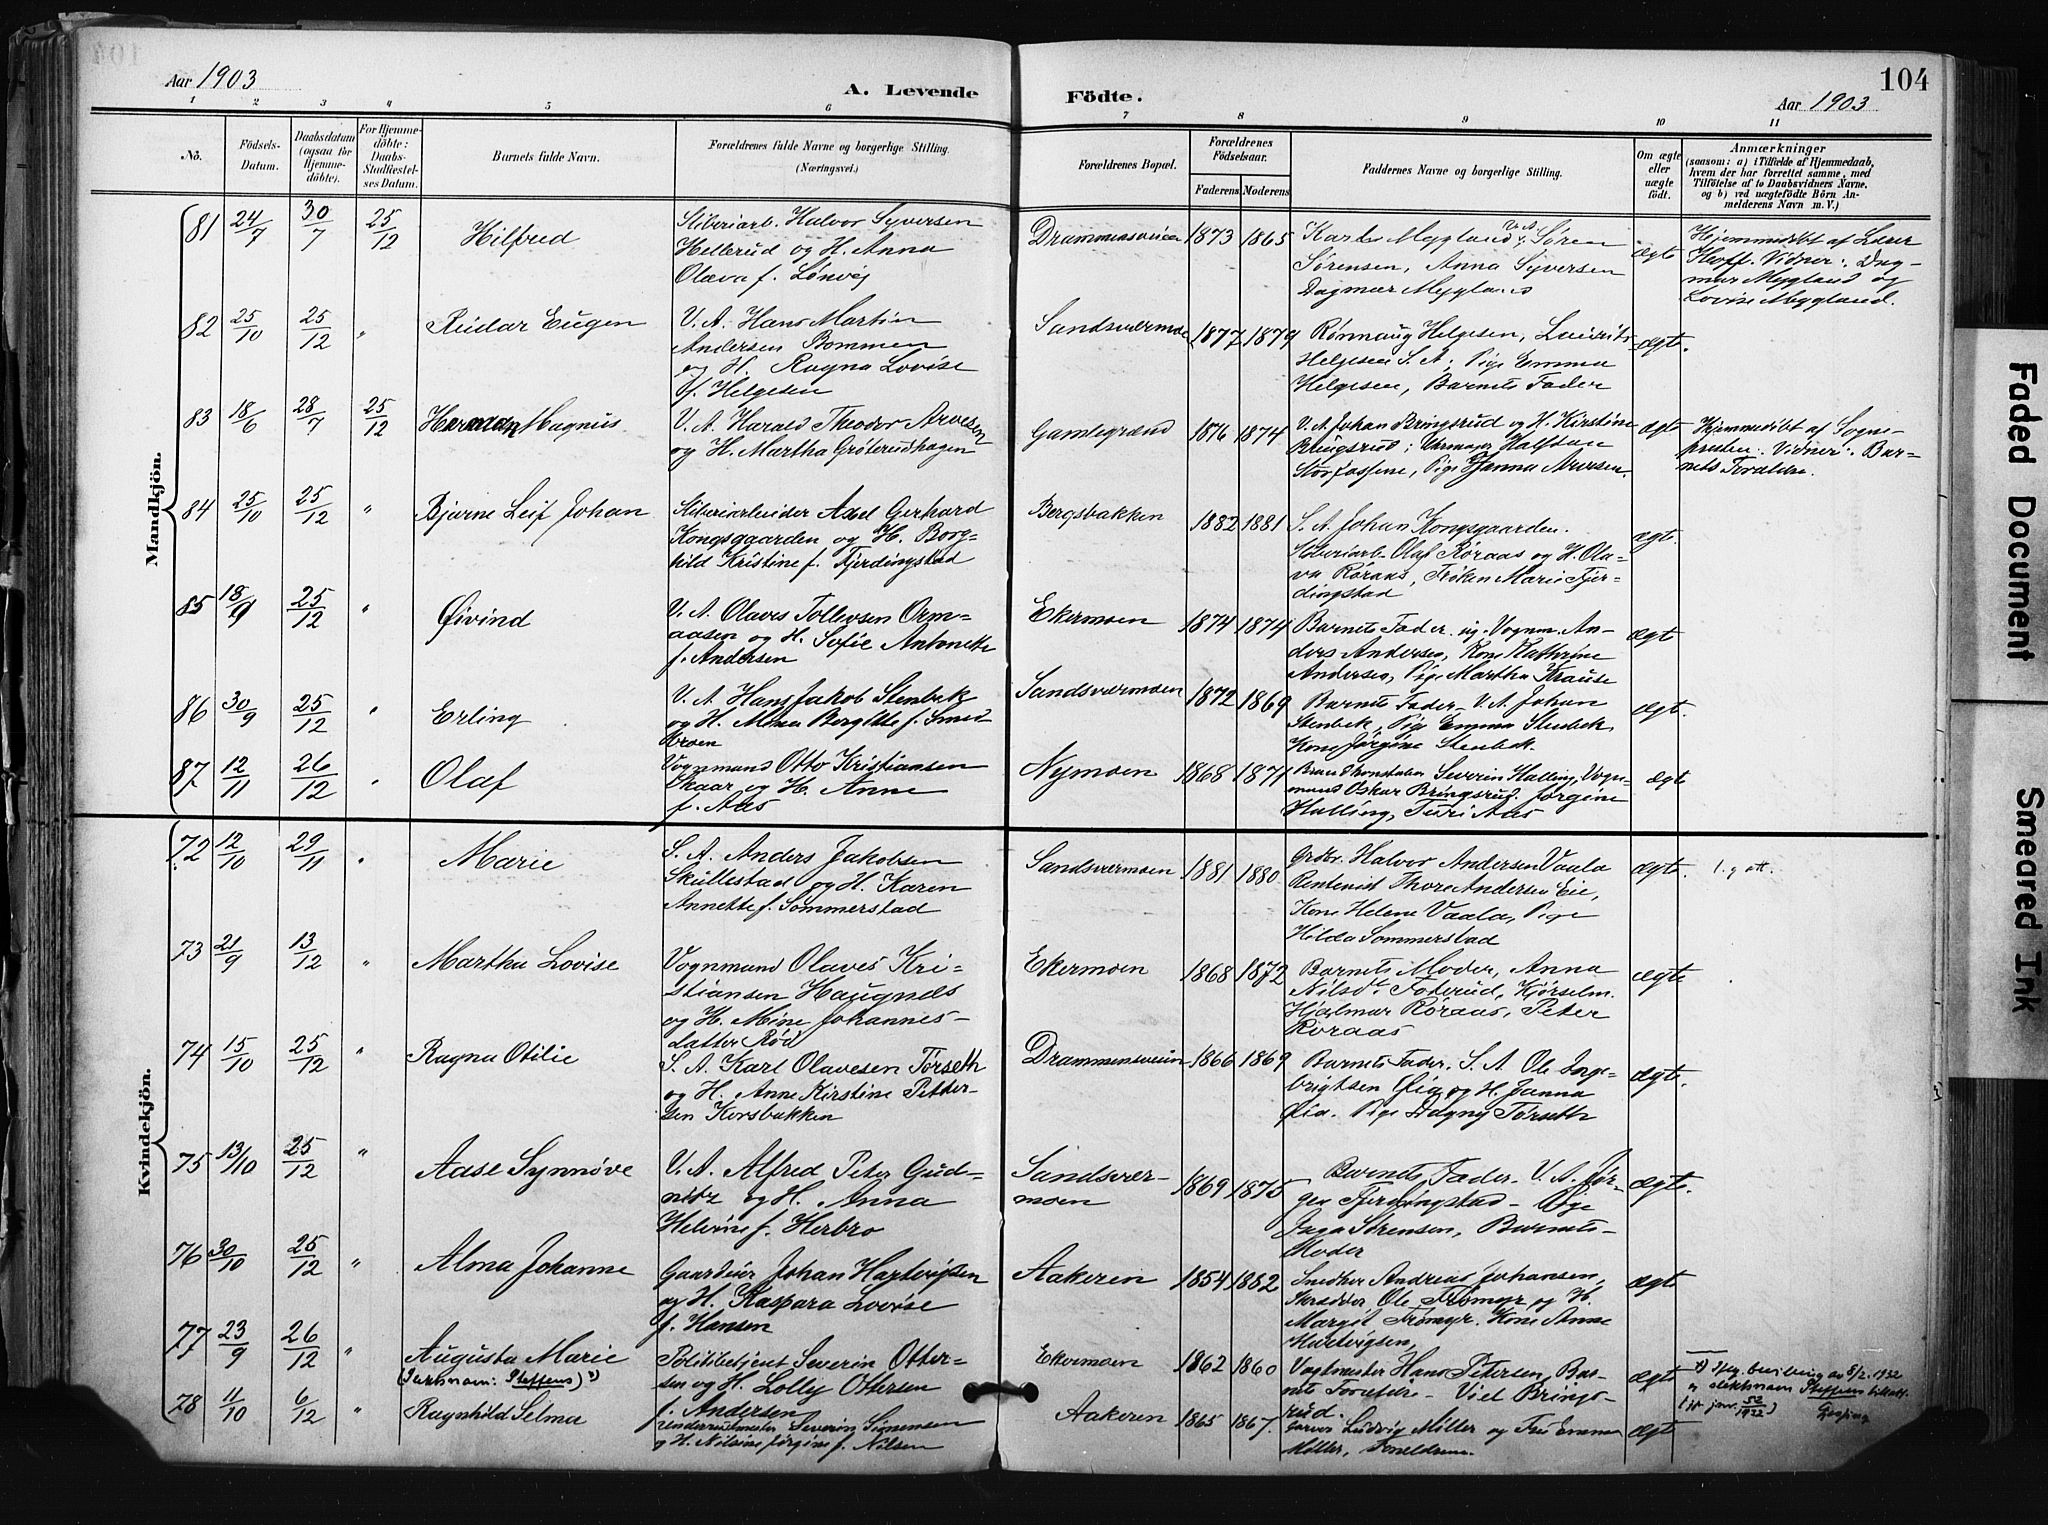 104
Aar 1903
A. Levende Födte.
Aar 1903
1 2 3 4 5 6 7 8 9 10 11
No.
Födsels-Datum.
Daabsdatum (ogsaa for Hjemme-döbte).
For Hjemme-döbte: Daabs-Stadfæstel-ses Datum.
Barnets fulde Navn.
Forældrenes fulde Navne og borgerlige Stilling. (Næringsvei.)
Forældrenes Bopæl.
Forældrenes Födselsaar.
Faderens. Moderens.
Faddernes Navne og borgerlige Stilling.
Om ægte eller uægte født.
Anmærkninger
(saasom: a) i Tilfælde af Hjemmedaab,
hvem der har forrettet samme, med
Tilføielse af to Daabsvidners Navne.
og b) ved uægtefödte Börn An-
melderens Navn m. V.)
Mandkjön.
81 24/7 30/7 25/12 Hilfred
Sliberiarb. Halvor Syversen
Hellerud og H. Anna
Olava f. Lønvig
Drammensveien 1873 1865
Karl Mygland, Søren
Sørensen, Anna Syversen
Dagmar Mygland
ægte
Hjemmedøbt af Læser
Hoff. Vidner: Dag-
mar Mygland og
Lovise Mygland.
82 25/10 25/12 " Reidar Eugen
V. A. Hans Martin
Andersen Bommen
og H. Ragna Lovise
f. Helgesen
Sandsværmoen 1877 1879
Rønnaug Helgesen, Lauritz
Helgesen S. A., Pige Emma
Helgesen, Barnets Fader
ægte.
83 18/6 28/7 25/12 Herman Magnus
V. A. Harald Theodor Arvesen
og H. Martha Grøterudhagen
Gamlegrænd 1876 1874
V. A. Johan Bringsrud og H. Kirstine
Bringsrud, Uhrmager Halfdan
Storfossene, Pige Janna Arvesen.
ægte
Hjemmedøbt af Sogne-
presten. Vidner: Bar-
nets Foræld​re.
84 25/10 25/12 " Bjarne Leif Johan
Sliberiarbeider Axel Gerhard
Kongsgaarden og H. Borg-
hild Kristine f. Fjerdingstad
Bergsbakken 1882 1881
S. A. Johan Kongsgaarden.
Sliberiarb. Olaf Røraas og H. Ola-
va Røraas, Frøken Marie Fjer-
dingstad
ægte.
85 18/9 25/12 " Øivind
V. A. Olaves Tollevsen Orm-
aasen og H. Sofie Antonette
f. Andersen
Ekermoen 1874 1874
Barnets Fader. Vognm. An-
ders Andersen, Kone Kathrine
Andersen, Pige Martha Krause
ægte
86 30/9 25/12 " Erling
V. A. Hans Jakob Stenbek
og H. Mina Bergitte f. Smed
broen
Sandsværmoen 1872 1869
Barnets Fader - V. A. Johan
Stenbek, Pige Emma Stenbek,
Kone Jørgine Stenbek.
ægte.
87 12/11 26/12 " Olaf
Vognmand Otto Kristiansen
Skaar og H. Anne
f. Aas
Nymoen 1868 1871
Brandkonstabel Severin Halling, Vogn-
mand Oskar Bringsrud. Jørgine
Halling, Turi Aas
ægte
Kvindekjön.
72 12/10 29/11 " Marie
S. A. Anders Jakobsen
Skullestad og H. Karen
Annette f. Sommerstad
Sandsværmoen 1881 1880
Grdbr. Halvor Andersen Vaala
Rentenist Thore Andersen Eie,
Kone Helene Vaala, Pige
Hilda Sommerstad
ægte.
73 21/9 13/12 " Martha Lovise
Vognmand Olaves Kri-
stiansen Haugnæs
og H. Mine Johannes-
datter Rød
Ekermoen 1868 1872
Barnets Moder, Anna
Nilsdt. Foterud, Kjørselm.
Hjalmar Røraas, Peter
Roraas
ægte
74 15/10 25/12 " Ragna Otilie
S. A. Karl Olavesen Tørseth
og H. Anne Kirstine Petter-
sen Korsbakken
Drammensveien 1866 1869
Barnets Fader. S. A. Ole Inge-
brigtsen Øia og H. Janna
Øia. Pige Dagny Tørseth
ægte.
75 13/10 25/12 " Aase Synnøve
V. A. Alfred Peter Gud-
nitz og H. Anna
Helvine f. Herbro
Sandsvær-
moen 1869 1875
Barnets Fader. V. A. Jør-
gen Fjerdingstad - Pige
Inga Sørensen, Barnets
Moder
ægte.
76 30/10 25/12 " Alma Johanne
Gaardeier Johan Hartvigsen
og H. Kaspara Lovise
f. Hansen
Aakeren 1854 1882
Snedker Andreas Johansen,
Ole Tromyr og H.
Margit Tromyr. Kone Anne
Hartvigsen,
ægte
77 23/9 26/12 " Augusta Marie
Politibetjent Severin Otter-
sen og H. Lolly Ottersen
f. Andersen
Ekermoen 1862 1860
Vagtmester Hans Petersen, Bar-
nets Forældre - Viel Brings-
rud.
ægte
x) Iflg. bevilling av 8/2. 1932
slektsnavn Steffens
78 4/10 6/12 " Ragnhild Selma
Severin Simensen
og H. Nilsine Jørgine f. Nilsen
Aakeren 1865 1867.
Garver Ludvig Møller og Fru Emma
Møller, Forældrene.
ægte
Faded Document
Smeared Ink